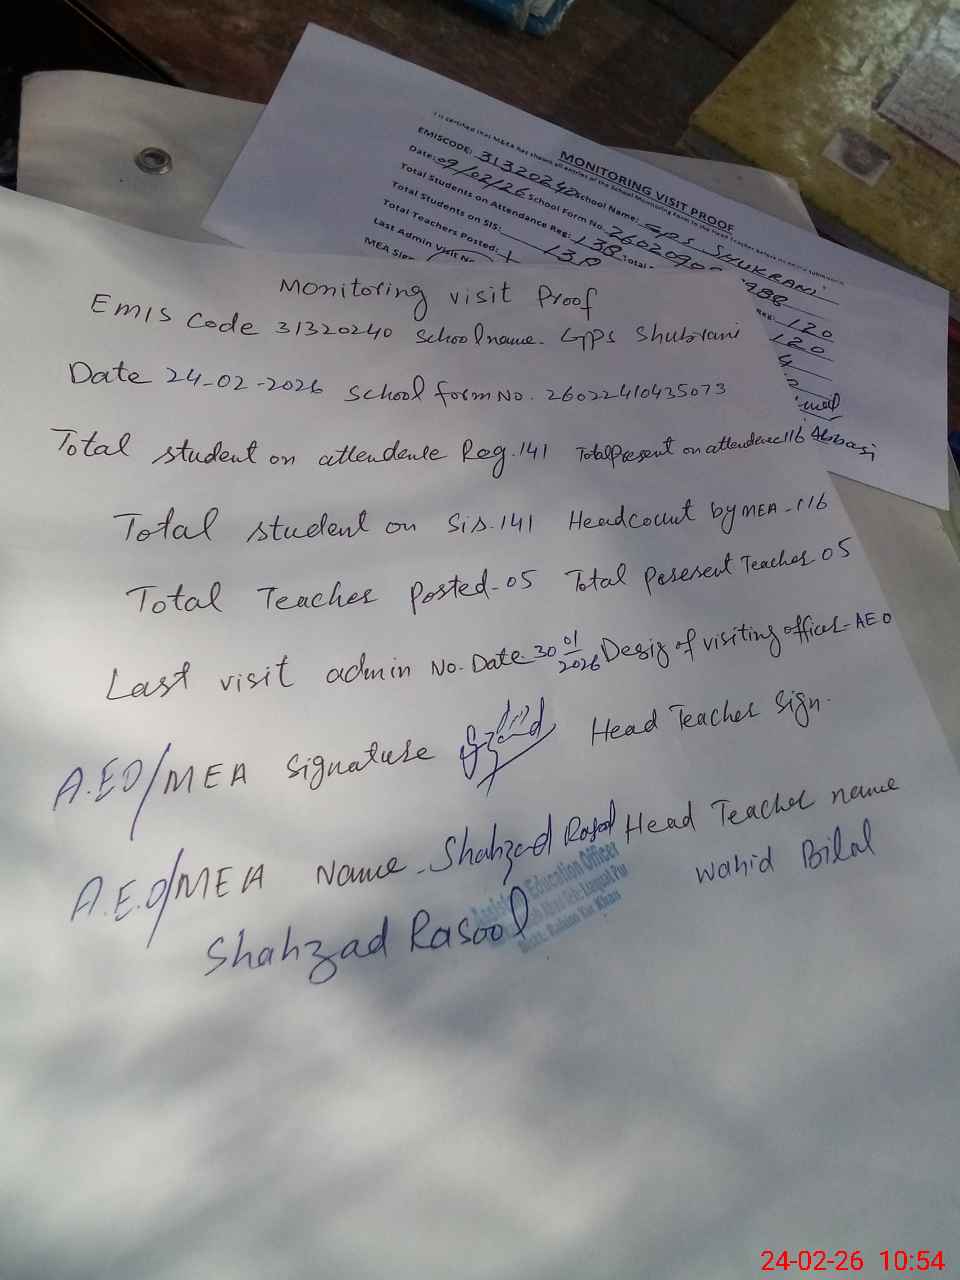 MONITORING VISIT PROOF
EMISCODE: 31320240 School Name: GPS SHUKRANI
Date: 09/02/26 School Form No.
Total Students on Attendance Reg: 138 Total
Total Students on SIS: 138
Total Teachers Posted:
Last Admin Visit No
MEA Sign
Reg: 120
120
Monitoring visit Proof
EMIS Code 31320240 School name. GPS Shukrani
Date 24-02-2026 School form No. 26022410435073
Total student on attendence Reg. 141 Total Present on attendence 116
Total student on Sis. 141 Headcount by MEA - 116
Total Teacher posted - 05 Total Peresent Teacher 05
Last visit admin No. Date 30 01/2026 Desig of visiting officer - AEO
A.EO/MEA Signature Head Teacher Sign.
A.E.O/MEA Name - Shahzad Rasool Head Teacher name
Wahid Bilal
Shahzad Rasool
Assistant Education Officer
Distt. Rahim Yar Khan
24-02-26 10:54